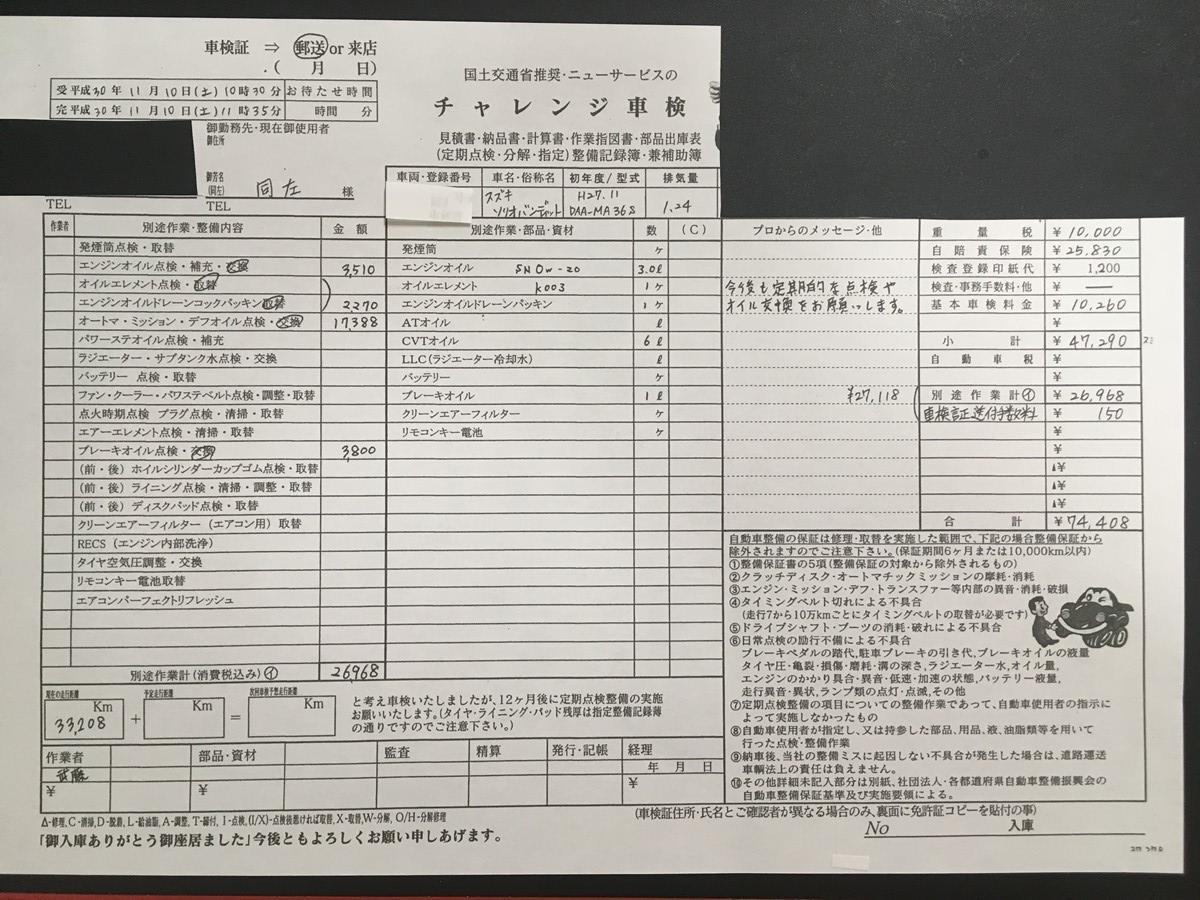 車検証 ⇒ 郵送 or 来店
.( 月 日)
受 平成30年 11月10日(土)10時30分 お待たせ時間
完 平成30年 11月10日(土)11時35分 時間 分
御勤務先・現在御使用者
御住所
御芳名
(同左) 同左 様
TEL TEL
国土交通省推奨・ニューサービスの
チャレンジ車検
見積書・納品書・計算書・作業指図書・部品出庫表
(定期点検・分解・指定)整備記録簿・兼補助簿
車両・登録番号 車名・俗称名 初年度/型式 排気量
スズキ H27.11
ソリオバンディット DAA-MA36S 1.24
作業者 別途作業・整備内容 金額 別途作業・部品・資材 数 (C) プロからのメッセージ・他 重量税 ¥10,000
発煙筒点検・取替 発煙筒 ヶ 自賠責保険 ¥25,830
エンジンオイル点検・補充・交換 3,510 エンジンオイル SN0W-20 3.0ℓ 検査登録印紙代 ¥1,200
オイルエレメント点検・取替 オイルエレメント K003 1ヶ 今後も定期的な点検や 検査・事務手数料・他 ¥ ―
エンジンオイルドレーンコックパッキン取替 2,270 エンジンオイルドレーンパッキン 1ヶ オイル交換をお願いします。 基本車検料金 ¥10,260
オートマ・ミッション・デフオイル点検・交換 17,388 ATオイル ℓ ¥
パワーステオイル点検・補充 CVTオイル 6ℓ 小計 ¥47,290
ラジエーター・サブタンク水点検・交換 LLC(ラジエーター冷却水) ℓ 自動車税 ¥
バッテリー 点検・取替 バッテリー ヶ ¥
ファン・クーラー・パワステベルト点検・調整・取替 ブレーキオイル 1ℓ ¥27,118 別途作業計イ ¥26,968
点火時期点検 プラグ点検・清掃・取替 クリーンエアーフィルター ヶ 車検証送付手数料 ¥150
エアーエレメント点検・清掃・取替 リモコンキー電池 ヶ ¥
ブレーキオイル点検・交換 3,800 ¥
(前・後)ホイルシリンダーカップゴム点検・取替 ▲¥
(前・後)ライニング点検・清掃・調整・取替 ▲¥
(前・後)ディスクパッド点検・取替 ▲¥
クリーンエアーフィルター(エアコン用)取替 合計 ¥74,408
RECS(エンジン内部洗浄)
タイヤ空気圧調整・交換
リモコンキー電池取替
エアコンパーフェクトリフレッシュ
別途作業計(消費税込み)イ 26,968
自動車整備の保証は修理・取替を実施した範囲で、下記の場合整備保証から
除外されますのでご注意下さい。(保証期間6ヶ月または10,000km以内)
①整備保証書の5項(整備保証の対象から除外されるもの)
②クラッチディスク・オートマチックミッションの摩耗・消耗
③エンジン・ミッション・デフ・トランスファー等内部の異音・消耗・破損
④タイミングベルト切れによる不具合
(走行7から10万kmごとにタイミングベルトの取替が必要です)
⑤ドライブシャフト・ブーツの消耗・破れによる不具合
⑥日常点検の励行不備による不具合
ブレーキペダルの踏代、駐車ブレーキの引き代、ブレーキオイルの液量
タイヤ圧・亀裂・損傷・磨耗・溝の深さ、ラジエーター水、オイル量、
エンジンのかかり具合・異音・低速・加速の状態、バッテリー液量、
走行異音・異状、ランプ類の点灯・点滅、その他
⑦定期点検整備の項目についての整備作業であって、自動車使用者の指示に
よって実施しなかったもの
⑧自動車使用者が指定し、又は持参した部品、用品、液、油脂類等を用いて
行った点検・整備作業
⑨納車後、当社の整備ミスに起因しない不具合が発生した場合は、道路運送
車輌法上の責任は負えません。
⑩その他詳細未記入部分は別紙、社団法人・各都道府県自動車整備振興会の
自動車整備保証基準及び実施要領による。
現在の走行距離 予定走行距離 次回車検予想走行距離
33,208 Km + Km = Km
と考え車検いたしましたが、12ヶ月後に定期点検整備の実施
お願いいたします。(タイヤ・ライニング・パッド残厚は指定整備記録簿
の通りですのでご注意下さい。)
作業者 部品・資材 監査 精算 発行・記帳 経理
武藤 年 月 日
¥ ¥ ¥
(車検証住所・氏名とご確認者が異なる場合のみ、裏面に免許証コピーを貼付の事)
Δ-修理、C-清掃、D-脱着、L-給油脂、A-調整、T-締付、I-点検、(I/X)-点検後悪ければ取替、X-取替、W-分解、O/H-分解修理
「御入庫ありがとう御座居ました」今後ともよろしくお願い申しあげます。
No 入庫